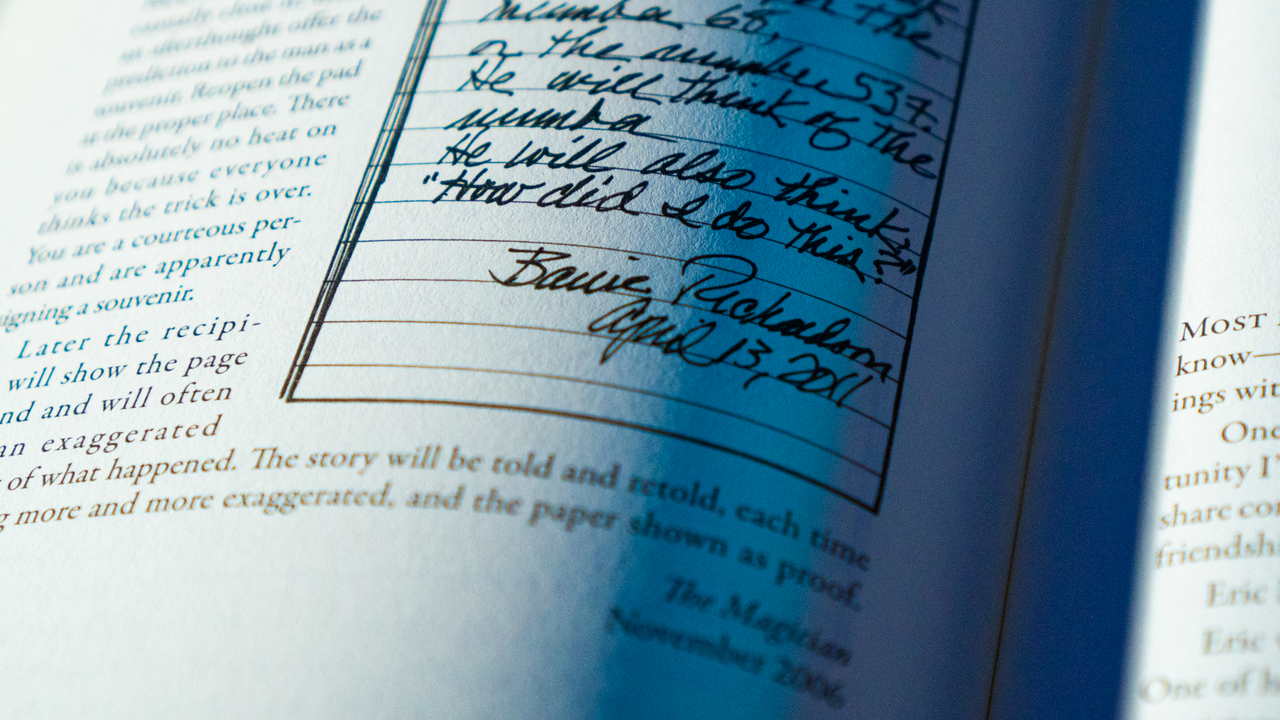 casually close it
an afterthought offer the
prediction to the man as a
souvenir. Reopen the pad
at the proper place. There
is absolutely no heat on
you because everyone
thinks the trick is over.
You are a courteous per-
son and are apparently
signing a souvenir.
Later the recipi-
will show the page
nd and will often
an exaggerated
of what happened. The story will be told and retold, each time
g more and more exaggerated, and the paper shown as proof.
The Magician
November 2006
on the
number 68,
or the number 537.
He will think of the
number
He will also think,
"How did I do this?"
Barrie Richardson
April 13, 2011
MOST
know—
ings wit
One
tunity I'
share con
friendshi
Eric
Eric
One of h